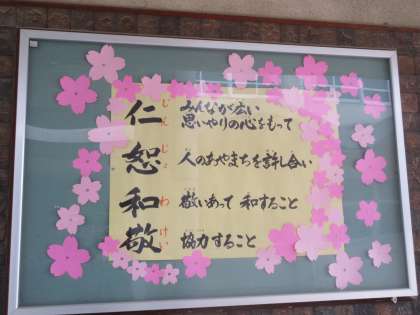 仁 じん みんなが広い
思いやりの心をもって
恕 じょ 人のあやまちを許し合い
和 わ 敬いあって 和すること
敬 けい 協力すること